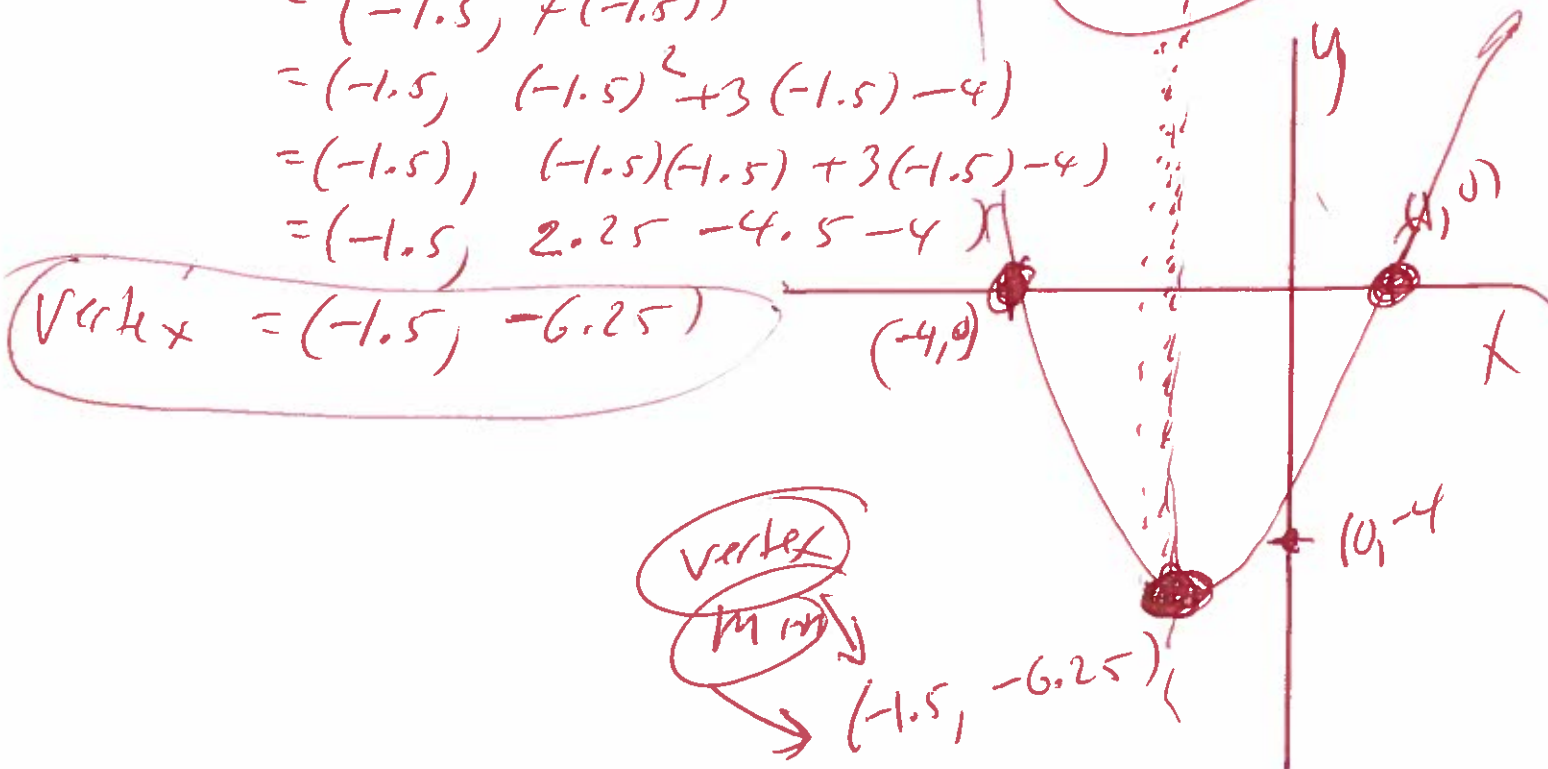 = (-1.5, f(-1.5))
= (-1.5, (-1.5)² + 3(-1.5) - 4)
= (-1.5), (-1.5)(-1.5) + 3(-1.5) - 4)
= (-1.5, 2.25 - 4.5 - 4)
Vertex = (-1.5, -6.25)
y
(1, 0)
(-4, 0)
x
(0, -4
vertex
min
(-1.5, -6.25)